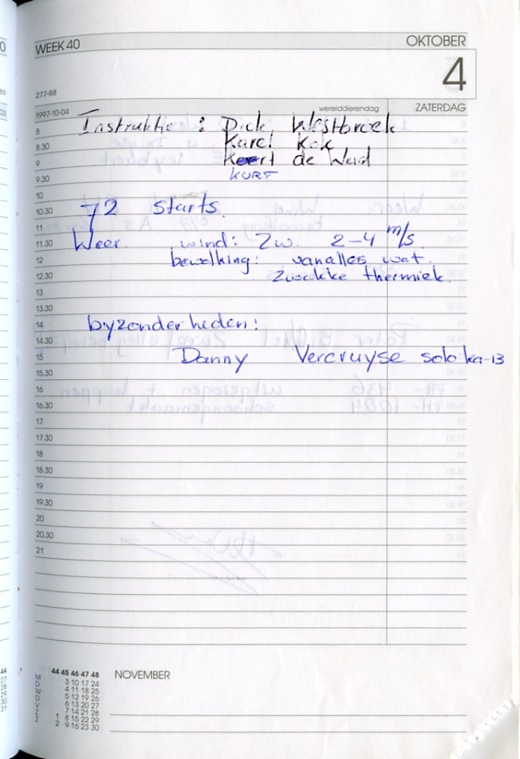 WEEK 40 OKTOBER
4
277-88
1997-10-04 werelddierendag ZATERDAG
8 Instruktie : Dick Westbroek
8.30 Karel Kok
9 de Waid
9.30 KURT
10
10.30 72 starts.
11
11.30 Weer wind: ZW. 2-4 m/s.
12 bewolking: vanalles wat.
12.30 Zwakke thermiek.
13
13.30
14 byzonderheden:
14.30
15 Danny Vercruyse solo ka-13
15.30
16
16.30
17
17.30
18
18.30
19
19.30
20
20.30
21
44 45 46 47 48 NOVEMBER
M 3 10 17 24
D 4 11 18 25
W 5 12 19 26
D 6 13 20 27
V 7 14 21 28
Z 1 8 15 22 29
Z 2 9 16 23 30